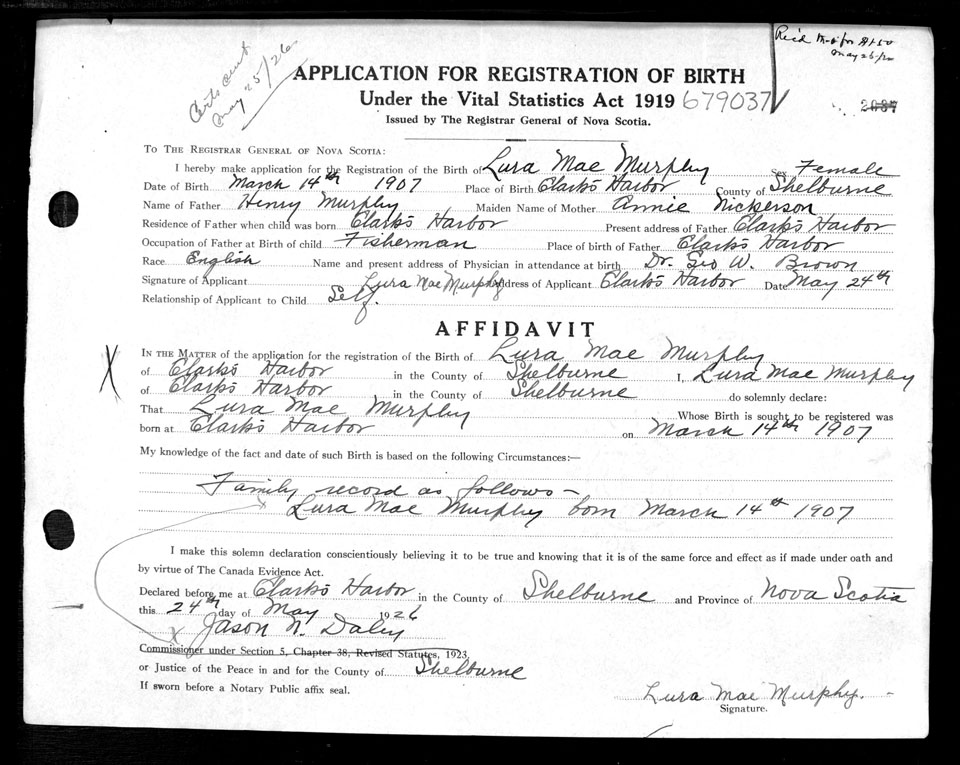 Rec'd M.O for $1.50
May 26/26
Certs sent
May 25/26
APPLICATION FOR REGISTRATION OF BIRTH
Under the Vital Statistics Act 1919 679037
Issued by The Registrar General of Nova Scotia.
TO THE REGISTRAR GENERAL OF NOVA SCOTIA:
I hereby make application for the Registration of the Birth of Lura Mae Murphy Sex Female
Date of Birth March 14th 1907 Place of Birth Clark's Harbor County of Shelburne
Name of Father Henry Murphy Maiden Name of Mother Annie Nickerson
Residence of Father when child was born Clark's Harbor Present address of Father Clark's Harbor
Occupation of Father at Birth of child Fisherman Place of birth of Father Clark's Harbor
Race English Name and present address of Physician in attendance at birth Dr. Geo W. Brown
Signature of Applicant Lura Mae Murphy Address of Applicant Clark's Harbor Date May 24th
Relationship of Applicant to Child Self.
AFFIDAVIT
IN THE MATTER of the application for the registration of the Birth of Lura Mae Murphy
of Clark's Harbor in the County of Shelburne I, Lura Mae Murphy
of Clark's Harbor in the County of Shelburne do solemnly declare:
That Lura Mae Murphy Whose Birth is sought to be registered was
born at Clark's Harbor on March 14th 1907
My knowledge of the fact and date of such Birth is based on the following Circumstances:—
Family record as follows –
Lura Mae Murphy born March 14th 1907
I make this solemn declaration conscientiously believing it to be true and knowing that it is of the same force and effect as if made under oath and
by virtue of The Canada Evidence Act.
Declared before me at Clark's Harbor in the County of Shelburne and Province of Nova Scotia
this 24th day of May 1926
Jason N. Daley
Commissioner under Section 5, Chapter 38, Revised Statutes, 1923,
or Justice of the Peace in and for the County of Shelburne
If sworn before a Notary Public affix seal.
Lura Mae Murphy.
Signature.